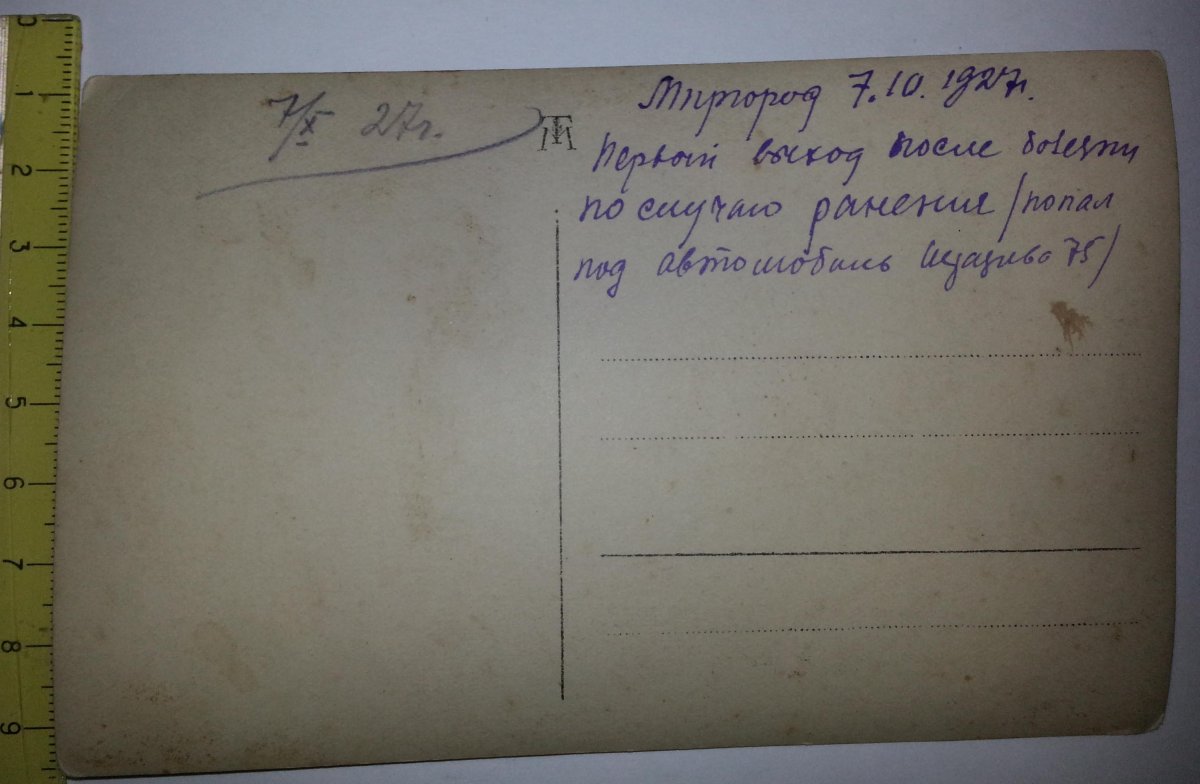 7/X 27г.
Миргород 7.10.1927г.
Первый выход после болезни
по случаю ранения /попал
под автомобиль 75/
0
1
2
3
4
5
6
7
8
9